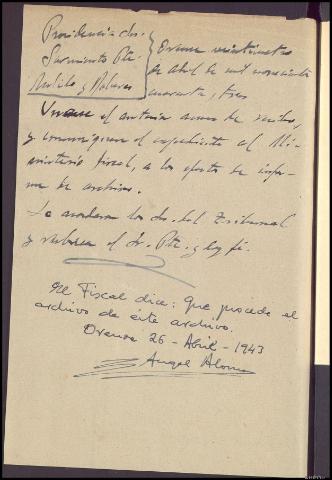 Providencia Srs.
Sarmiento Pte.
Orense veintiuatro
de abril de mil novecientos
cuarenta y tres
Unase el anterior acuse de recibo,
y comuníquese el expediente al Mi-
nisterio fiscal, a los efectos de infor-
me de archivo.
Lo acordaron los Srs. del Tribunal
y rubrica el Sr. Pte. y doy fé.
El Fiscal dice: Que procede el
archivo de éste archivo.
Orense 26 - Abril - 1943
Angel Alonso